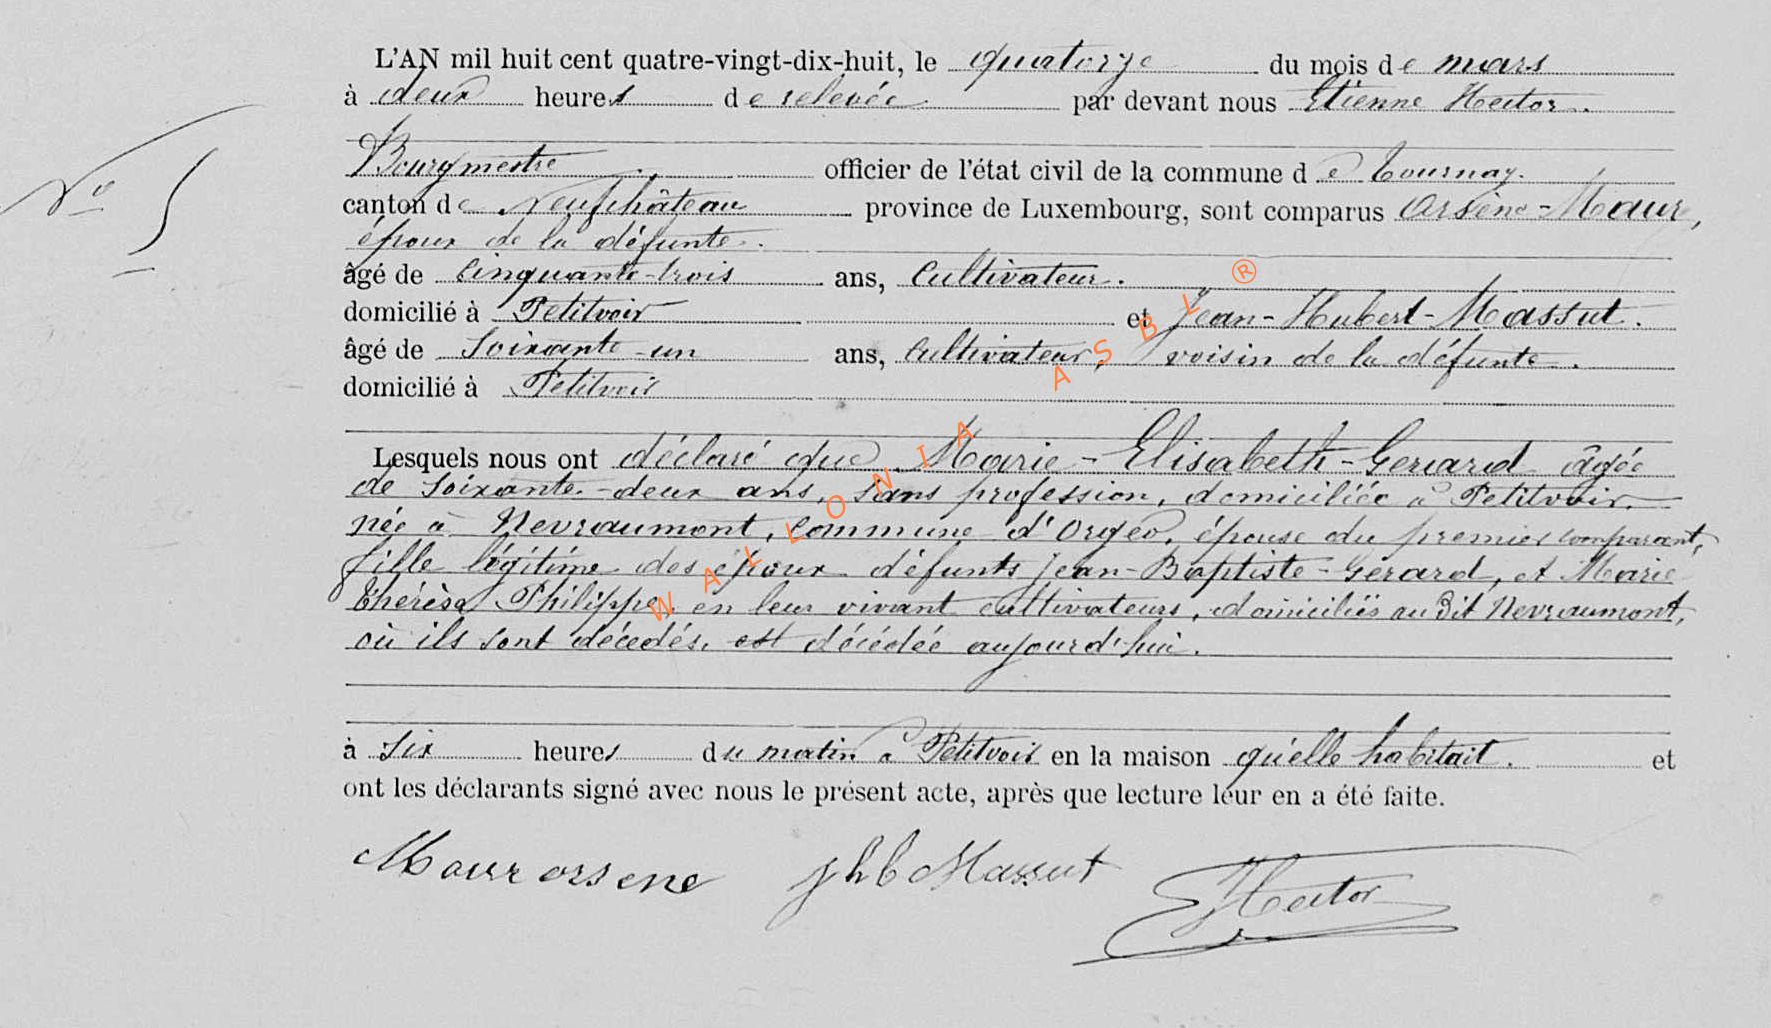 L'AN mil huit cent quatre-vingt-dix-huit, le quatorze du mois de mars
à deux heures de relevée par devant nous Etienne Hector.
Bourgmestre officier de l'état civil de la commune de Tournay.
canton de Neufchâteau province de Luxembourg, sont comparus Arsène-Maury,
époux de la défunte.
âgé de cinquante-trois ans, cultivateur.
domicilié à Petitvoir et Jean-Hubert-Massut.
âgé de soixante-un ans, cultivateur, voisin de la défunte.
domicilié à Petitvoir
N° 5
Lesquels nous ont déclaré que Marie-Elisabeth-Gerard âgée
de soixante-deux ans, sans profession, domiciliée à Petitvoir,
née à Nevraumont, commune d'Orgéo, épouse du premier comparant,
fille légitime des époux défunts Jean-Baptiste-Gerard, et Marie
Thérèse Philippe, en leur vivant cultivateurs, domiciliés au dit Nevraumont,
où ils sont décédés, est décédée aujourd'hui.
à six heures du matin à Petitvoir en la maison qu'elle habitait. et
ont les déclarants signé avec nous le présent acte, après que lecture leur en a été faite.
Maury arsene Jhb Massut EHector
WALLONIA ASBL ®